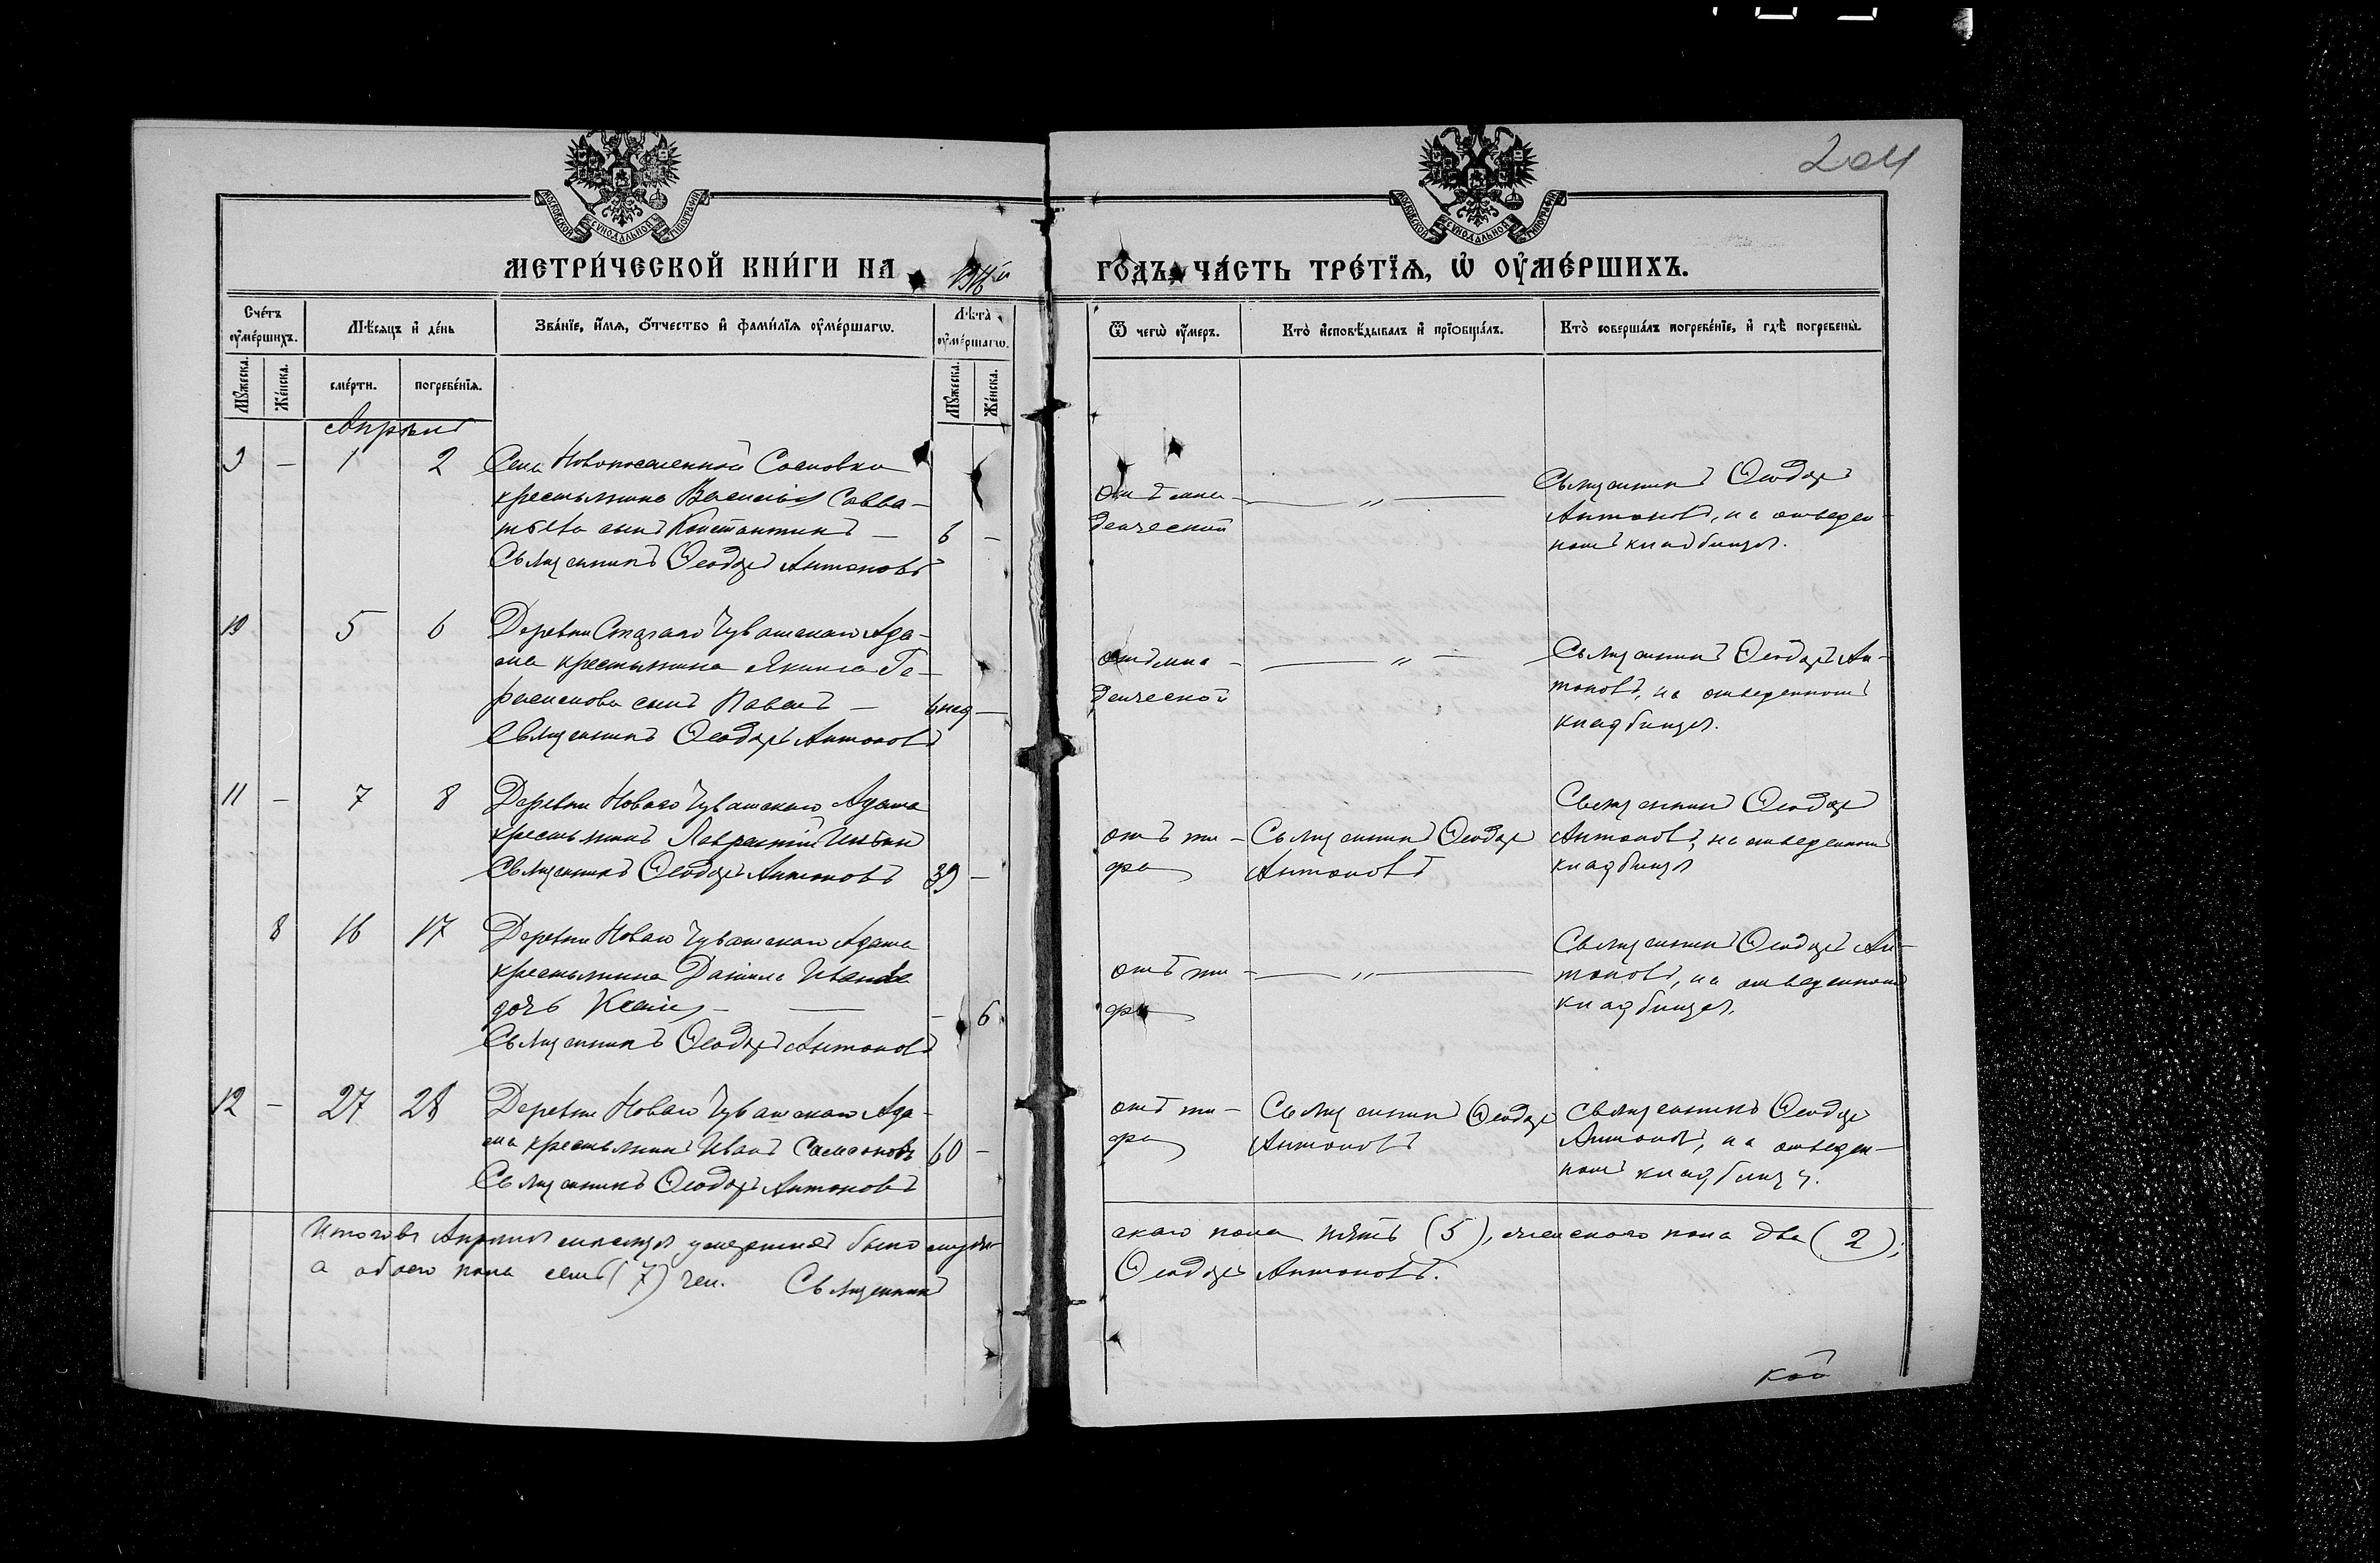 204
МОСКОВСКОЙ СѴНОДАЛЬНОЙ ТИПОГРАФІИ
МОСКОВСКОЙ СѴНОДАЛЬНОЙ ТИПОГРАФІИ
МЕТРИ́ЧЕСКОЙ КНИ́ГИ НА
ГО́ДЪ ЧА́СТЬ ТРЕ́ТЇѦ, Ѡ҆ ОУ҆МЕ́РШИХЪ.
Сче́тъ оу҆ме́ршихъ.
Мѣ́сяцъ и҆ де́нь
Зва́нїе, и҆́мѧ, ѻ҆́тчество и҆ фами́лїѧ оу҆ме́ршагѡ.
Лѣ́та оу҆ме́ршагѡ.
Ѿ чегѡ̀ оу҆́меръ.
Кто̀ и҆сповѣ́дывалъ и҆ прїѡбща́лъ.
Кто̀ соверша́лъ погребе́нїе, и҆ гдѣ̀ погребены̀.
Мꙋ́жеска.
Же́нска.
сме́рти.
погребе́нїѧ.
Мꙋ́жеска.
Же́нска.
Апрѣль
9 – 1 2 Села Новопоселенной Сосновки
крестьянина Василія Савва-
тѣева сынъ Константинъ – 6 –
Священникъ Ѳеодоръ Антоновъ
отъ мла-
денческой
– „ –
Священникъ Ѳеодоръ
Антоновъ, на отведен-
номъ кладбищѣ.
10 5 6 Деревни Стараго Чувашскаго Ада-
ма крестьянина Якима Ге-
расимова сынъ Павелъ – 6 нед –
Священникъ Ѳеодоръ Антоновъ
отъ мла-
денческой
– „ –
Священникъ Ѳеодоръ Ан-
тоновъ, на отведенномъ
кладбищѣ.
11 – 7 8 Деревни Новаго Чувашскаго Адама
крестьянинъ Лаврентій
Священникъ Ѳеодоръ Антоновъ 39 –
отъ ти-
фа
Священникъ Ѳеодоръ
Антоновъ
Священникъ Ѳеодоръ
Антоновъ, на отведенномъ
кладбищѣ
8 16 17 Деревни Новаго Чувашскаго Адама
крестьянина Даніила Иванова
дочь Ксенія – – – 6
Священникъ Ѳеодоръ Антоновъ
отъ ти-
фа
– „ –
Священникъ Ѳеодоръ Ан-
тоновъ, на отведенномъ
кладбищѣ.
12 – 27 28 Деревни Новаго Чувашскаго Ада-
ма крестьянинъ Иванъ Самсоновъ 60 –
Священникъ Ѳеодоръ Антоновъ
отъ ти-
фа
Священникъ Ѳеодоръ
Антоновъ
Священникъ Ѳеодоръ
Антоновъ, на отведен-
номъ кладбищѣ.
Итого въ Апрѣлѣ мѣсяцѣ умершихъ было муже-
скаго пола пять (5), женскаго пола два (2),
а обоего пола семь (7) чел. Священникъ
Ѳеодоръ Антоновъ.